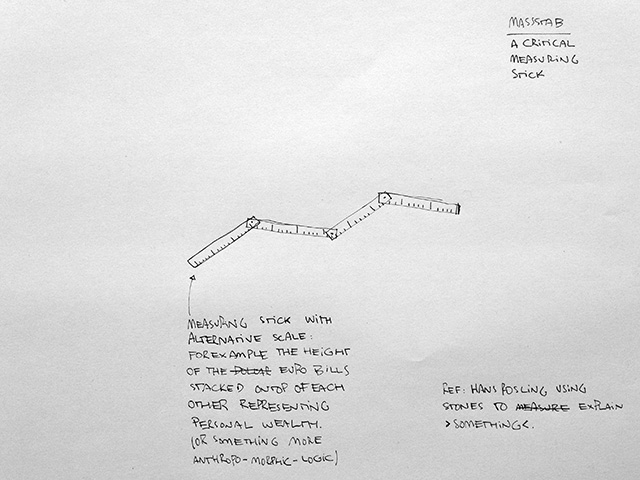 MASSSTAB
A CRITICAL
MEASURING
STICK
MEASURING STICK WITH
ALTERNATIVE SCALE:
FOR EXAMPLE THE HEIGHT
OF THE EURO BILLS
STACKED ONTOP OF EACH
OTHER REPRESENTING
PERSONAL WEALTH.
(OR SOMETHING MORE
ANTHROPO-MORPHIC-LOGIC)
REF: HANS ROSLING USING
STONES TO MEASURE EXPLAIN
>SOMETHING<.